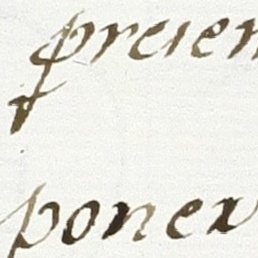 preien
poner